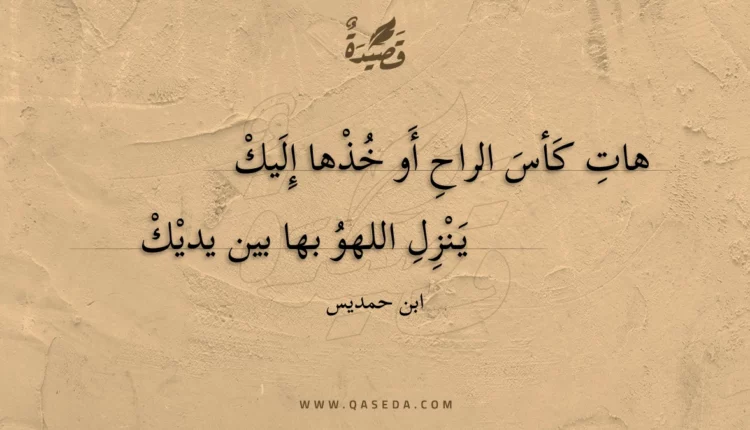 قَصِيدَةٌ
هاتِ كَأسَ الراحِ أَو خُذْها إِلَيكْ
يَنْزِلِ اللهوُ بها بين يديْكْ
ابن حمديس
WWW.QASEDA.COM